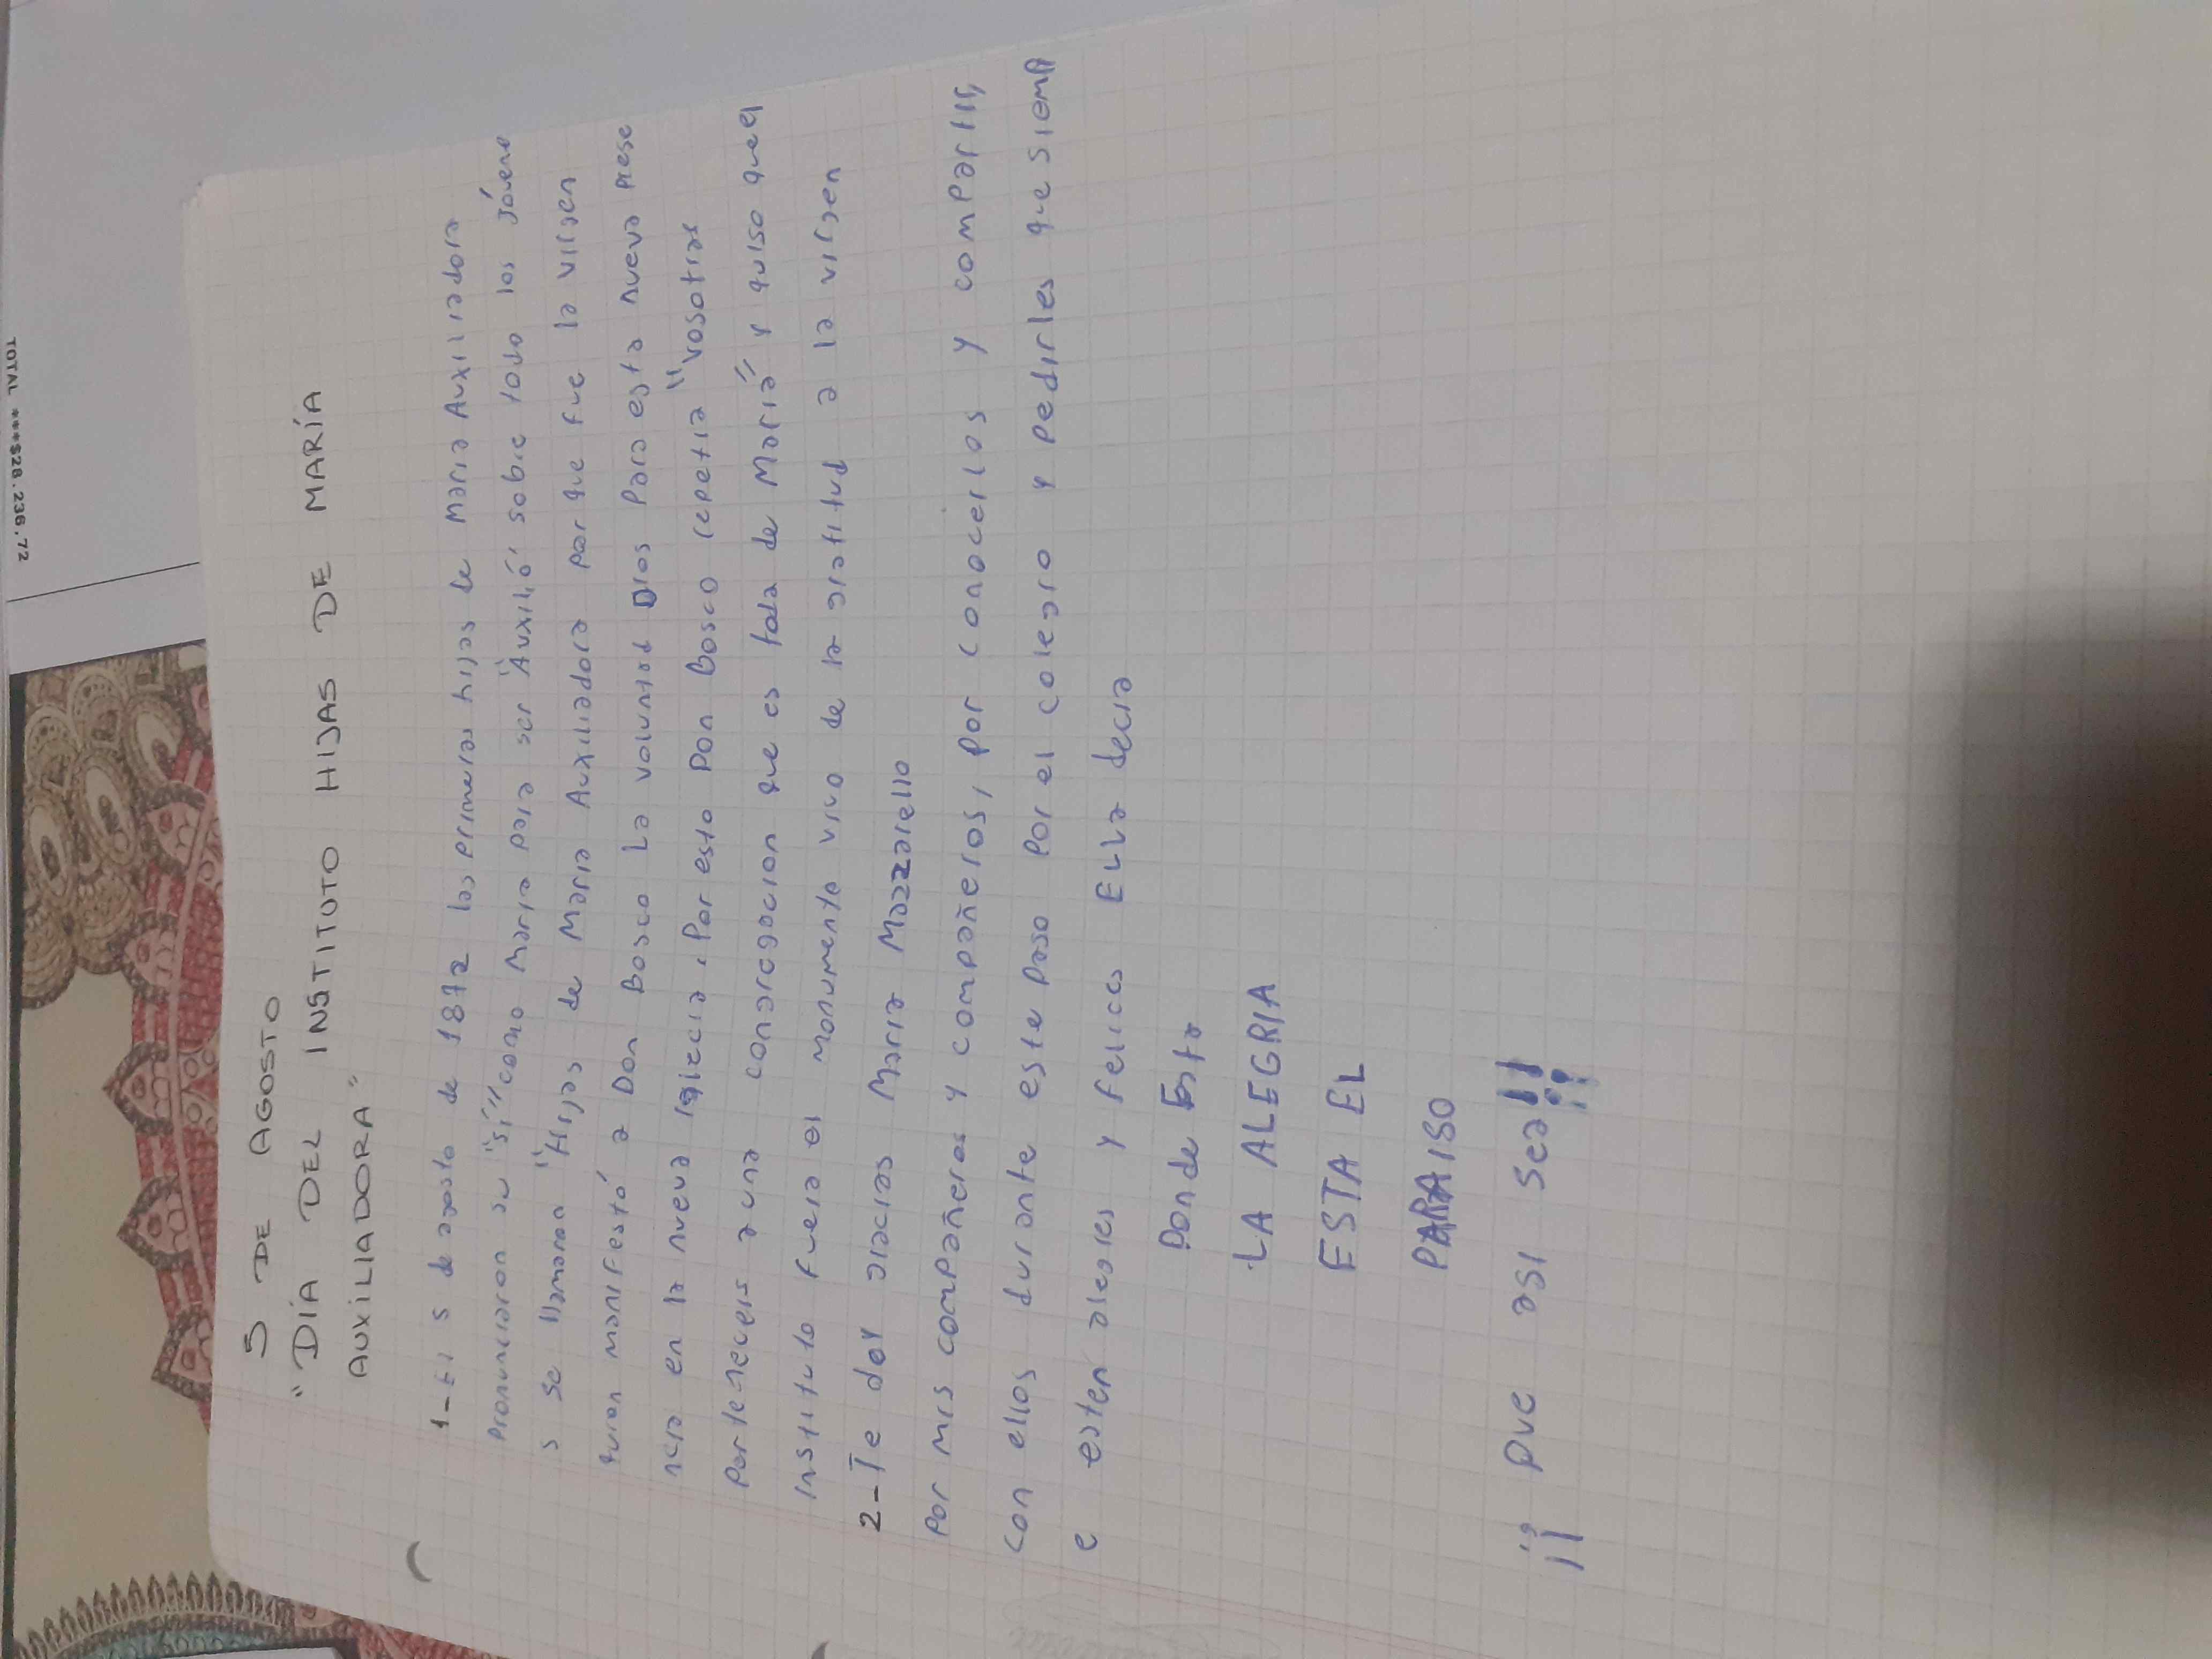 TOTAL ***$28.236,72
5 DE AGOSTO
"DÍA DEL INSTITUTO HIJAS DE MARÍA
AUXILIADORA"
1-El 5 de agosto de 1872 las primeras hijas de Maria Auxiliadora
Pronunciaron su "sí" como Maria para ser "Auxilió" sobre todo los jóvene
s se llamaran "Hijas de Maria Auxiliadora por que fue la virgen
quien manifestó a Don Bosco La voluntad Dios para esta nueva prese
ncia en la nueva iglecia, Por esto Don Bosco repetia "vosotras
Perteneceis a una congregacion que es toda de Maria" y quiso que el
instituto fuera el monumento vivo de la gratitud a la virgen
2-Te doy gracias Maria Mazzarello
Por mis compañeras y compañeros, por conocerlos y compartir,
con ellos durante este paso Por el colegio y pedirles que siempr
e esten alegres y felices ELLa decia
Donde Esta
LA ALEGRIA
ESTA EL
PARAISO
¡¡ Que asi sea!!